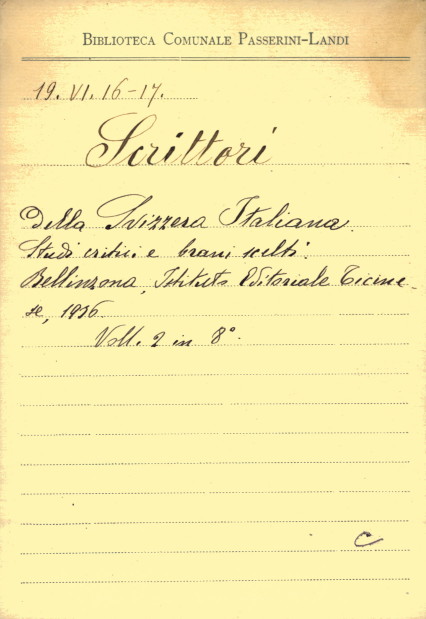 BIBLIOTECA COMUNALE PASSERINI-LANDI
19. VI. 16-17.
Scrittori
della Svizzera Italiana.
Studi critici e brani scelti.
Bellinzona, Istituto Editoriale Ticine-
se, 1936.
Voll. 2 in 8°.
C